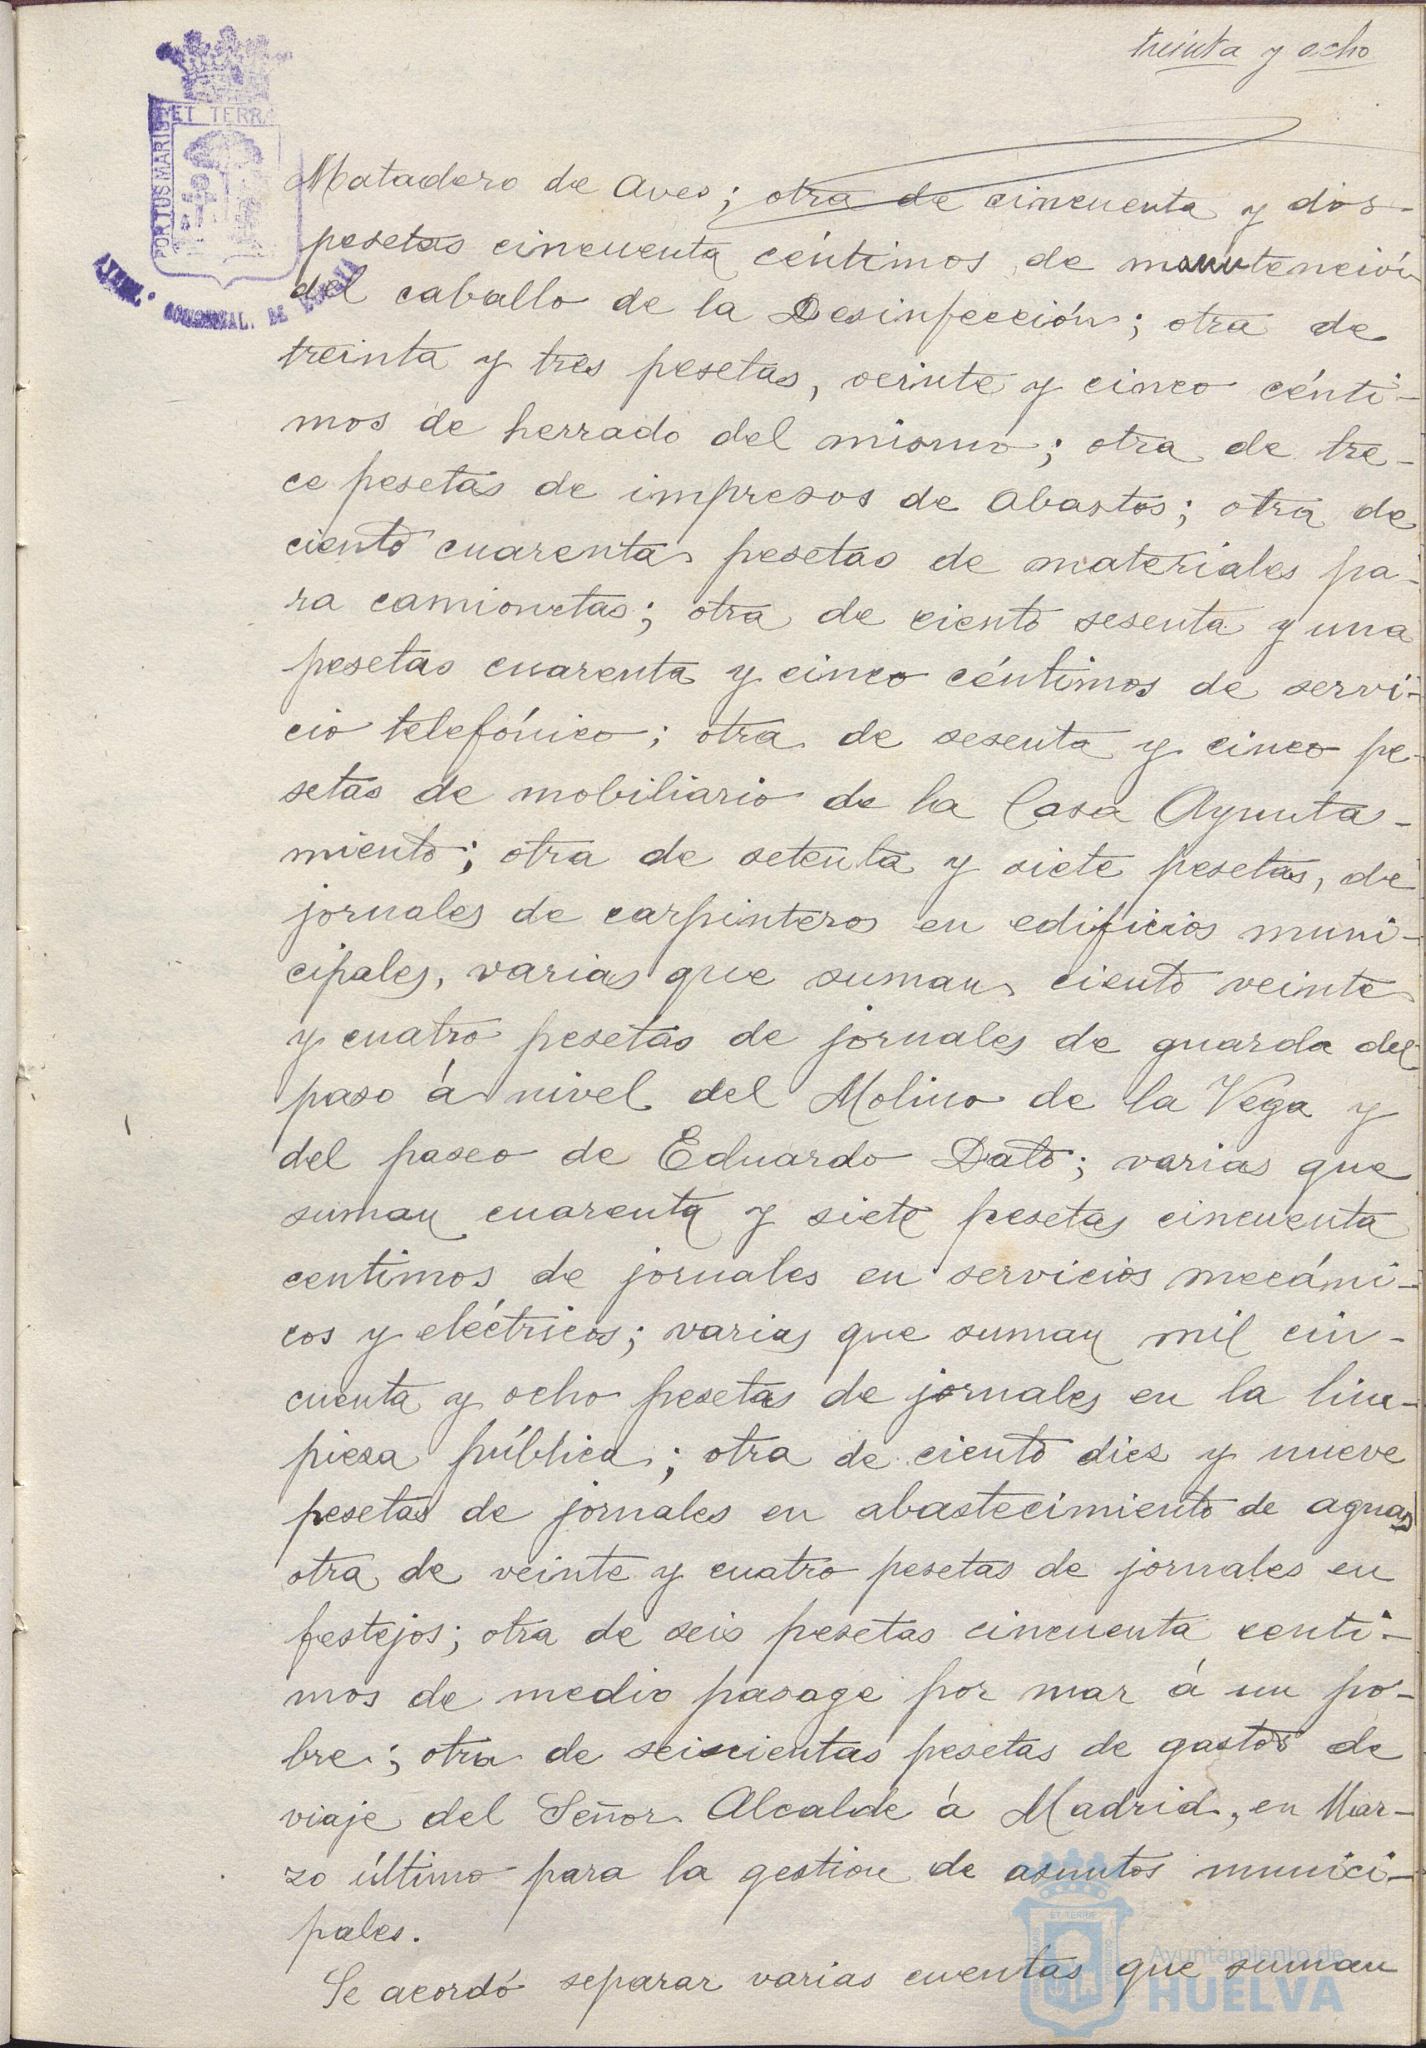 treinta y ocho
ET TERRÆ
PORTUS MARIS
DE
Matadero de Aves; otra de cincuenta y dos
pesetas cincuenta céntimos de manutención
del caballo de la Desinfección; otra de
treinta y tres pesetas, veinte y cinco cénti-
mos de herrado del mismo; otra de tre-
ce pesetas de impresos de Abastos; otra de
ciento cuarenta pesetas de materiales pa-
ra camionetas; otra de ciento sesenta y una
pesetas cuarenta y cinco céntimos de servi-
cio telefónico; otra de sesenta y cinco pe-
setas de mobiliario de la Casa Ayunta-
miento; otra de setenta y siete pesetas, de
jornales de carpinteros en edificios muni-
cipales, varias que suman ciento veinte
y cuatro pesetas de jornales de guarda del
paso á nivel del Molino de la Vega y
del paseo de Eduardo Dato; varias que
suman cuarenta y siete pesetas cincuenta
centimos de jornales en servicios mecáni-
cos y eléctricos; varias que suman mil cin-
cuenta y ocho pesetas de jornales en la lim-
pieza pública; otra de ciento diez y nueve
pesetas de jornales en abastecimiento de aguas
otra de veinte y cuatro pesetas de jornales en
festejos; otra de seis pesetas cincuenta centi-
mos de medio pasage por mar á un po-
bre; otra de seiscientas pesetas de gastos de
viaje del Señor Alcalde á Madrid, en Mar-
zo último para la gestion de asuntos munici-
pales.
Se acordó separar varias cuentas que suman
Ayuntamiento de
HUELVA